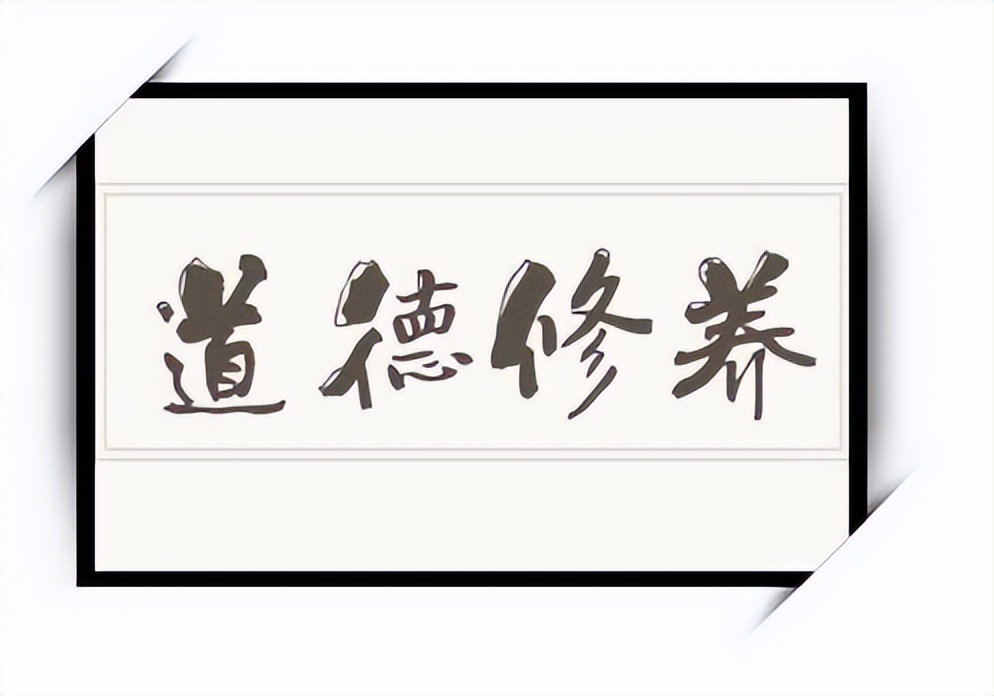 道德修养